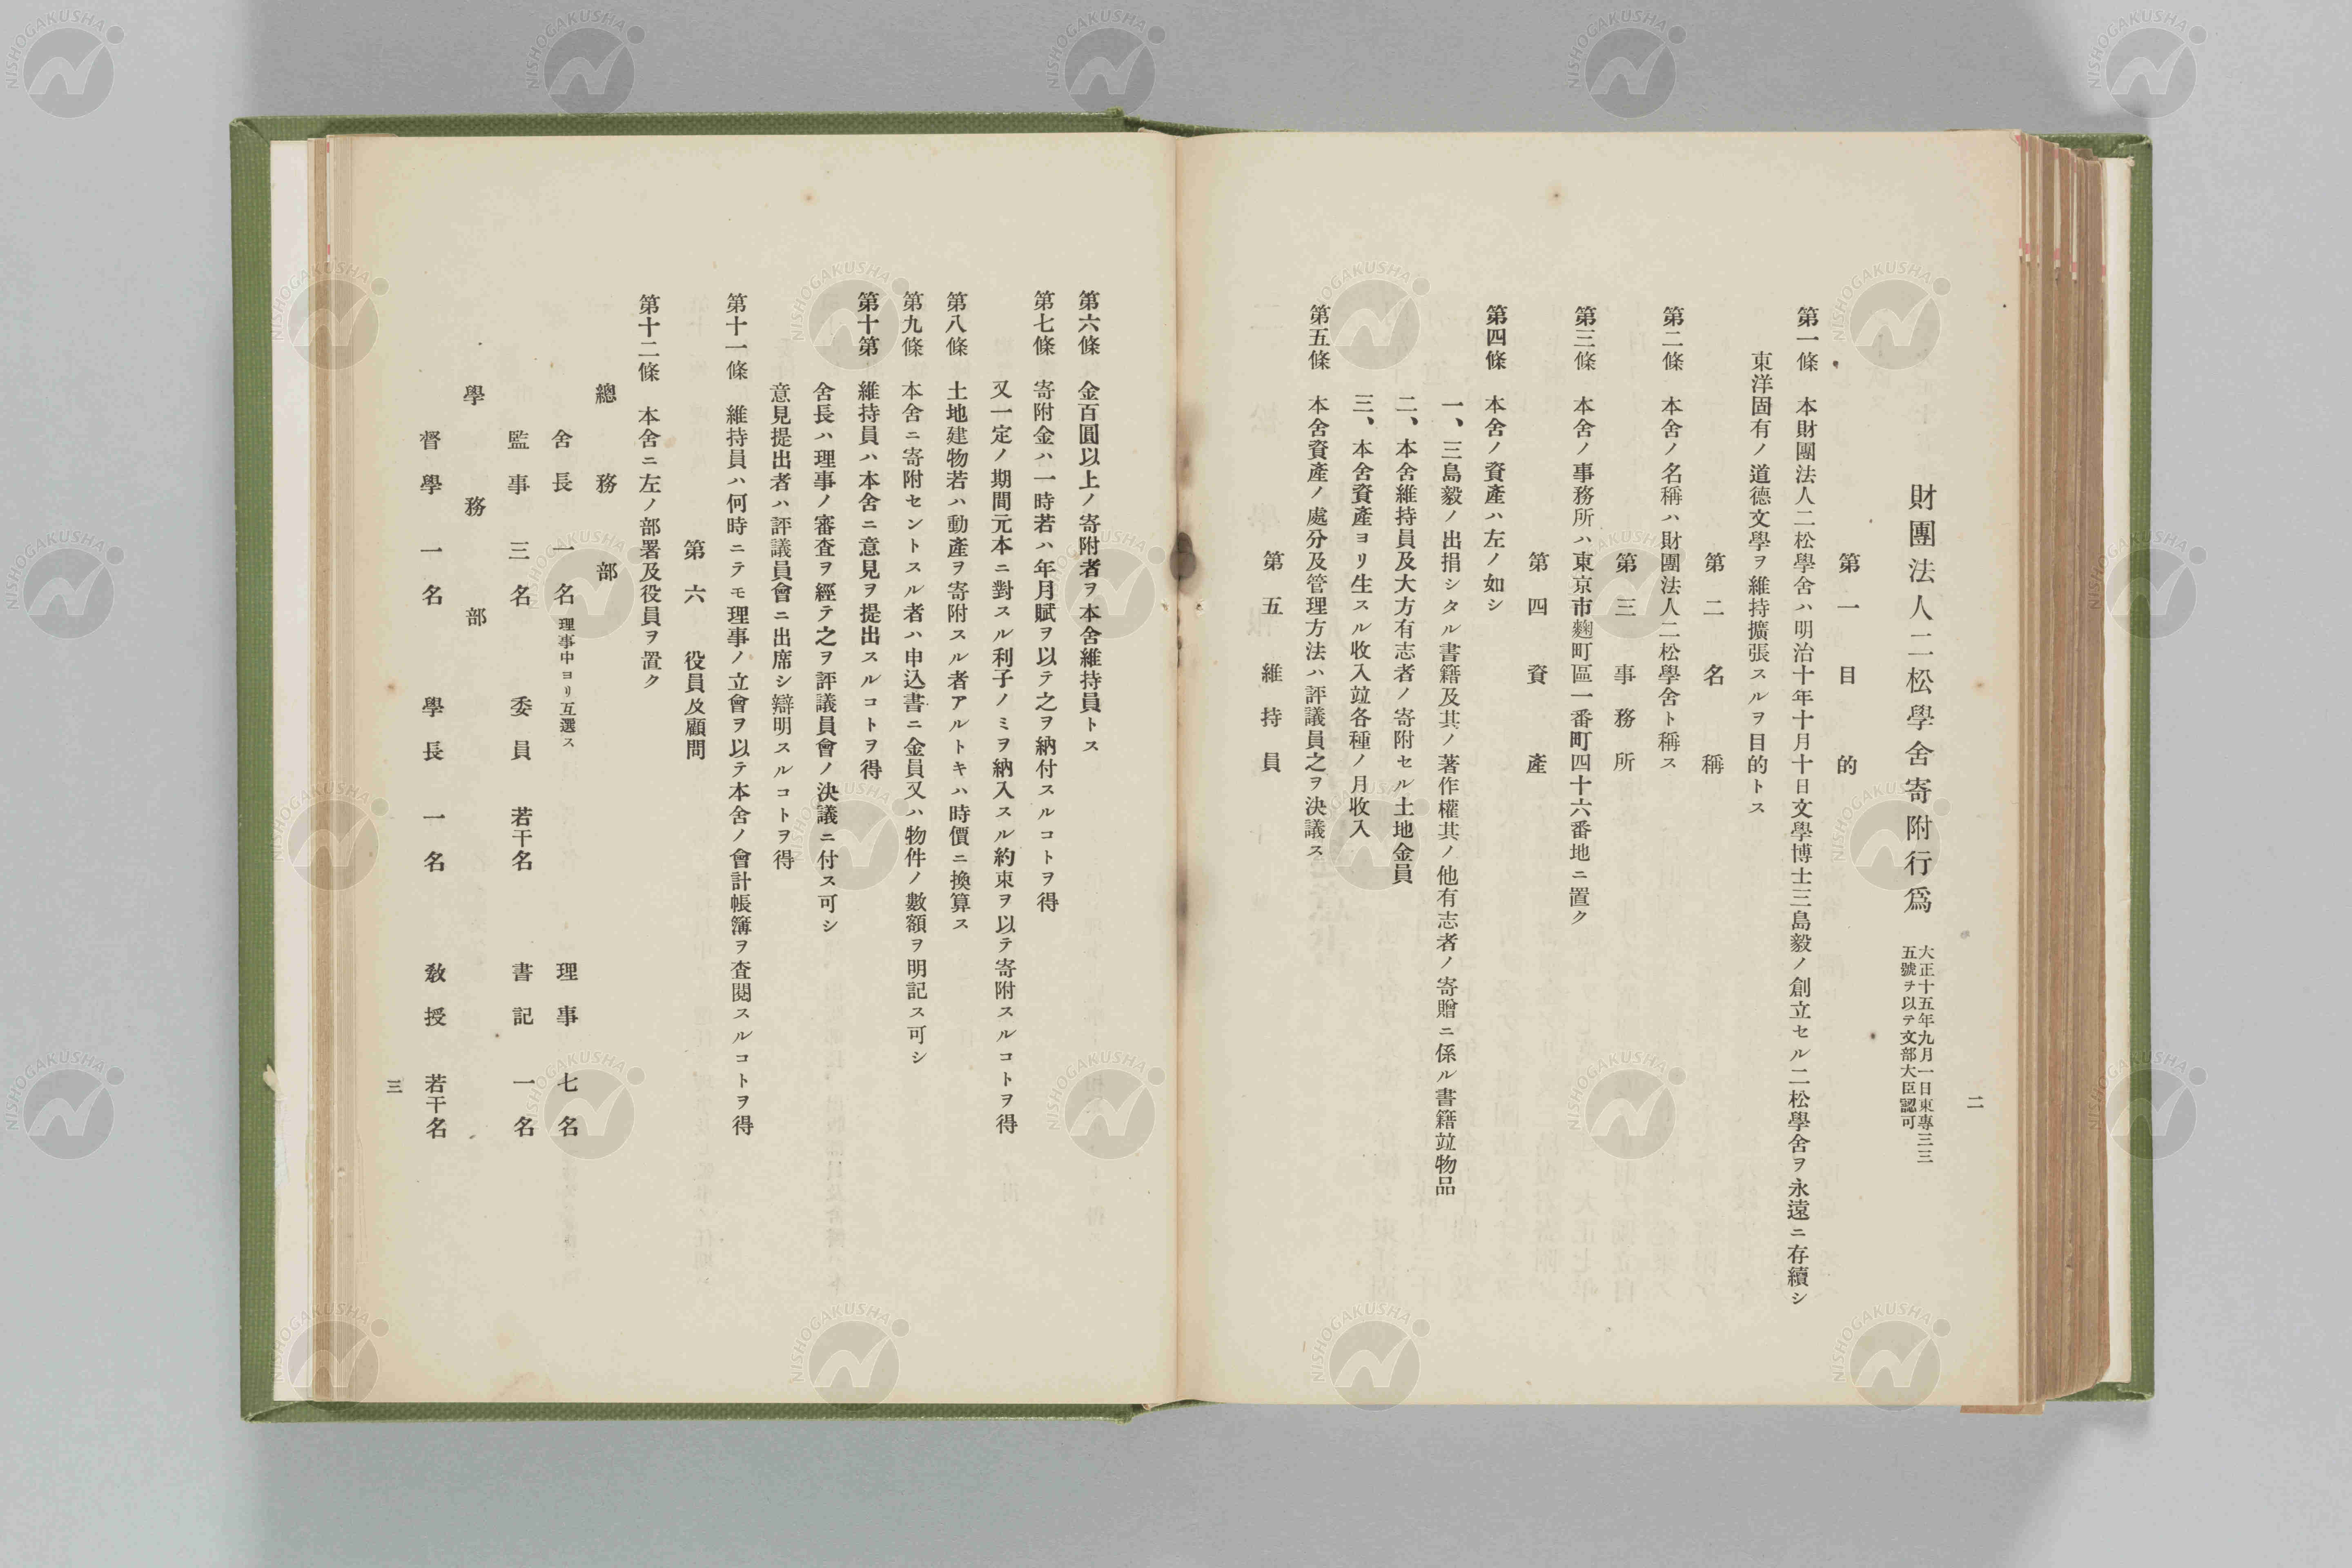 二
財團法人二松學舍寄附行爲
大正十五年九月一日東專三三
五號ヲ以テ文部大臣認可
第一 目的
第一條 本財團法人二松學舍ハ明治十年十月十日文學博士三島毅ノ創立セル二松學舍ヲ永遠ニ存續シ
東洋固有ノ道德文學ヲ維持擴張スルヲ目的トス
第二 名稱
第二條 本舍ノ名稱ハ財團法人二松學舍ト稱ス
第三 事務所
第三條 本舍ノ事務所ハ東京市麴町區一番町四十六番地ニ置ク
第四 資產
第四條 本舍ノ資產ハ左ノ如シ
一、三島毅ノ出捐シタル書籍及其ノ著作權其ノ他有志者ノ寄贈ニ係ル書籍竝物品
二、本舍維持員及大方有志者ノ寄附セル土地金員
三、本舍資產ヨリ生スル收入竝各種ノ月收入
第五條 本舍資產ノ處分及管理方法ハ評議員之ヲ決議ス
第五 維持員
第六條 金百圓以上ノ寄附者ヲ本舍維持員トス
第七條 寄附金ハ一時若ハ年月賦ヲ以テ之ヲ納付スルコトヲ得
又一定ノ期間元本ニ對スル利子ノミヲ納入スル約束ヲ以テ寄附スルコトヲ得
第八條 土地建物若ハ動產ヲ寄附スル者アルトキハ時價ニ換算ス
第九條 本舍ニ寄附セントスル者ハ申込書ニ金員又ハ物件ノ數額ヲ明記ス可シ
第十第 維持員ハ本舍ニ意見ヲ提出スルコトヲ得
舍長ハ理事ノ審査ヲ經テ之ヲ評議員會ノ決議ニ付ス可シ
意見提出者ハ評議員會ニ出席シ辯明スルコトヲ得
第十一條 維持員ハ何時ニテモ理事ノ立會ヲ以テ本舍ノ會計帳簿ヲ査閱スルコトヲ得
第六 役員及顧問
第十二條 本舍ニ左ノ部署及役員ヲ置ク
總務部
舍長 一名 理事中ヨリ互選ス 理事 七名
監事 三名 委員 若干名 書記 一名
學務部
督學 一名 學長 一名 敎授 若干名
三
NISHOGAKUSHA